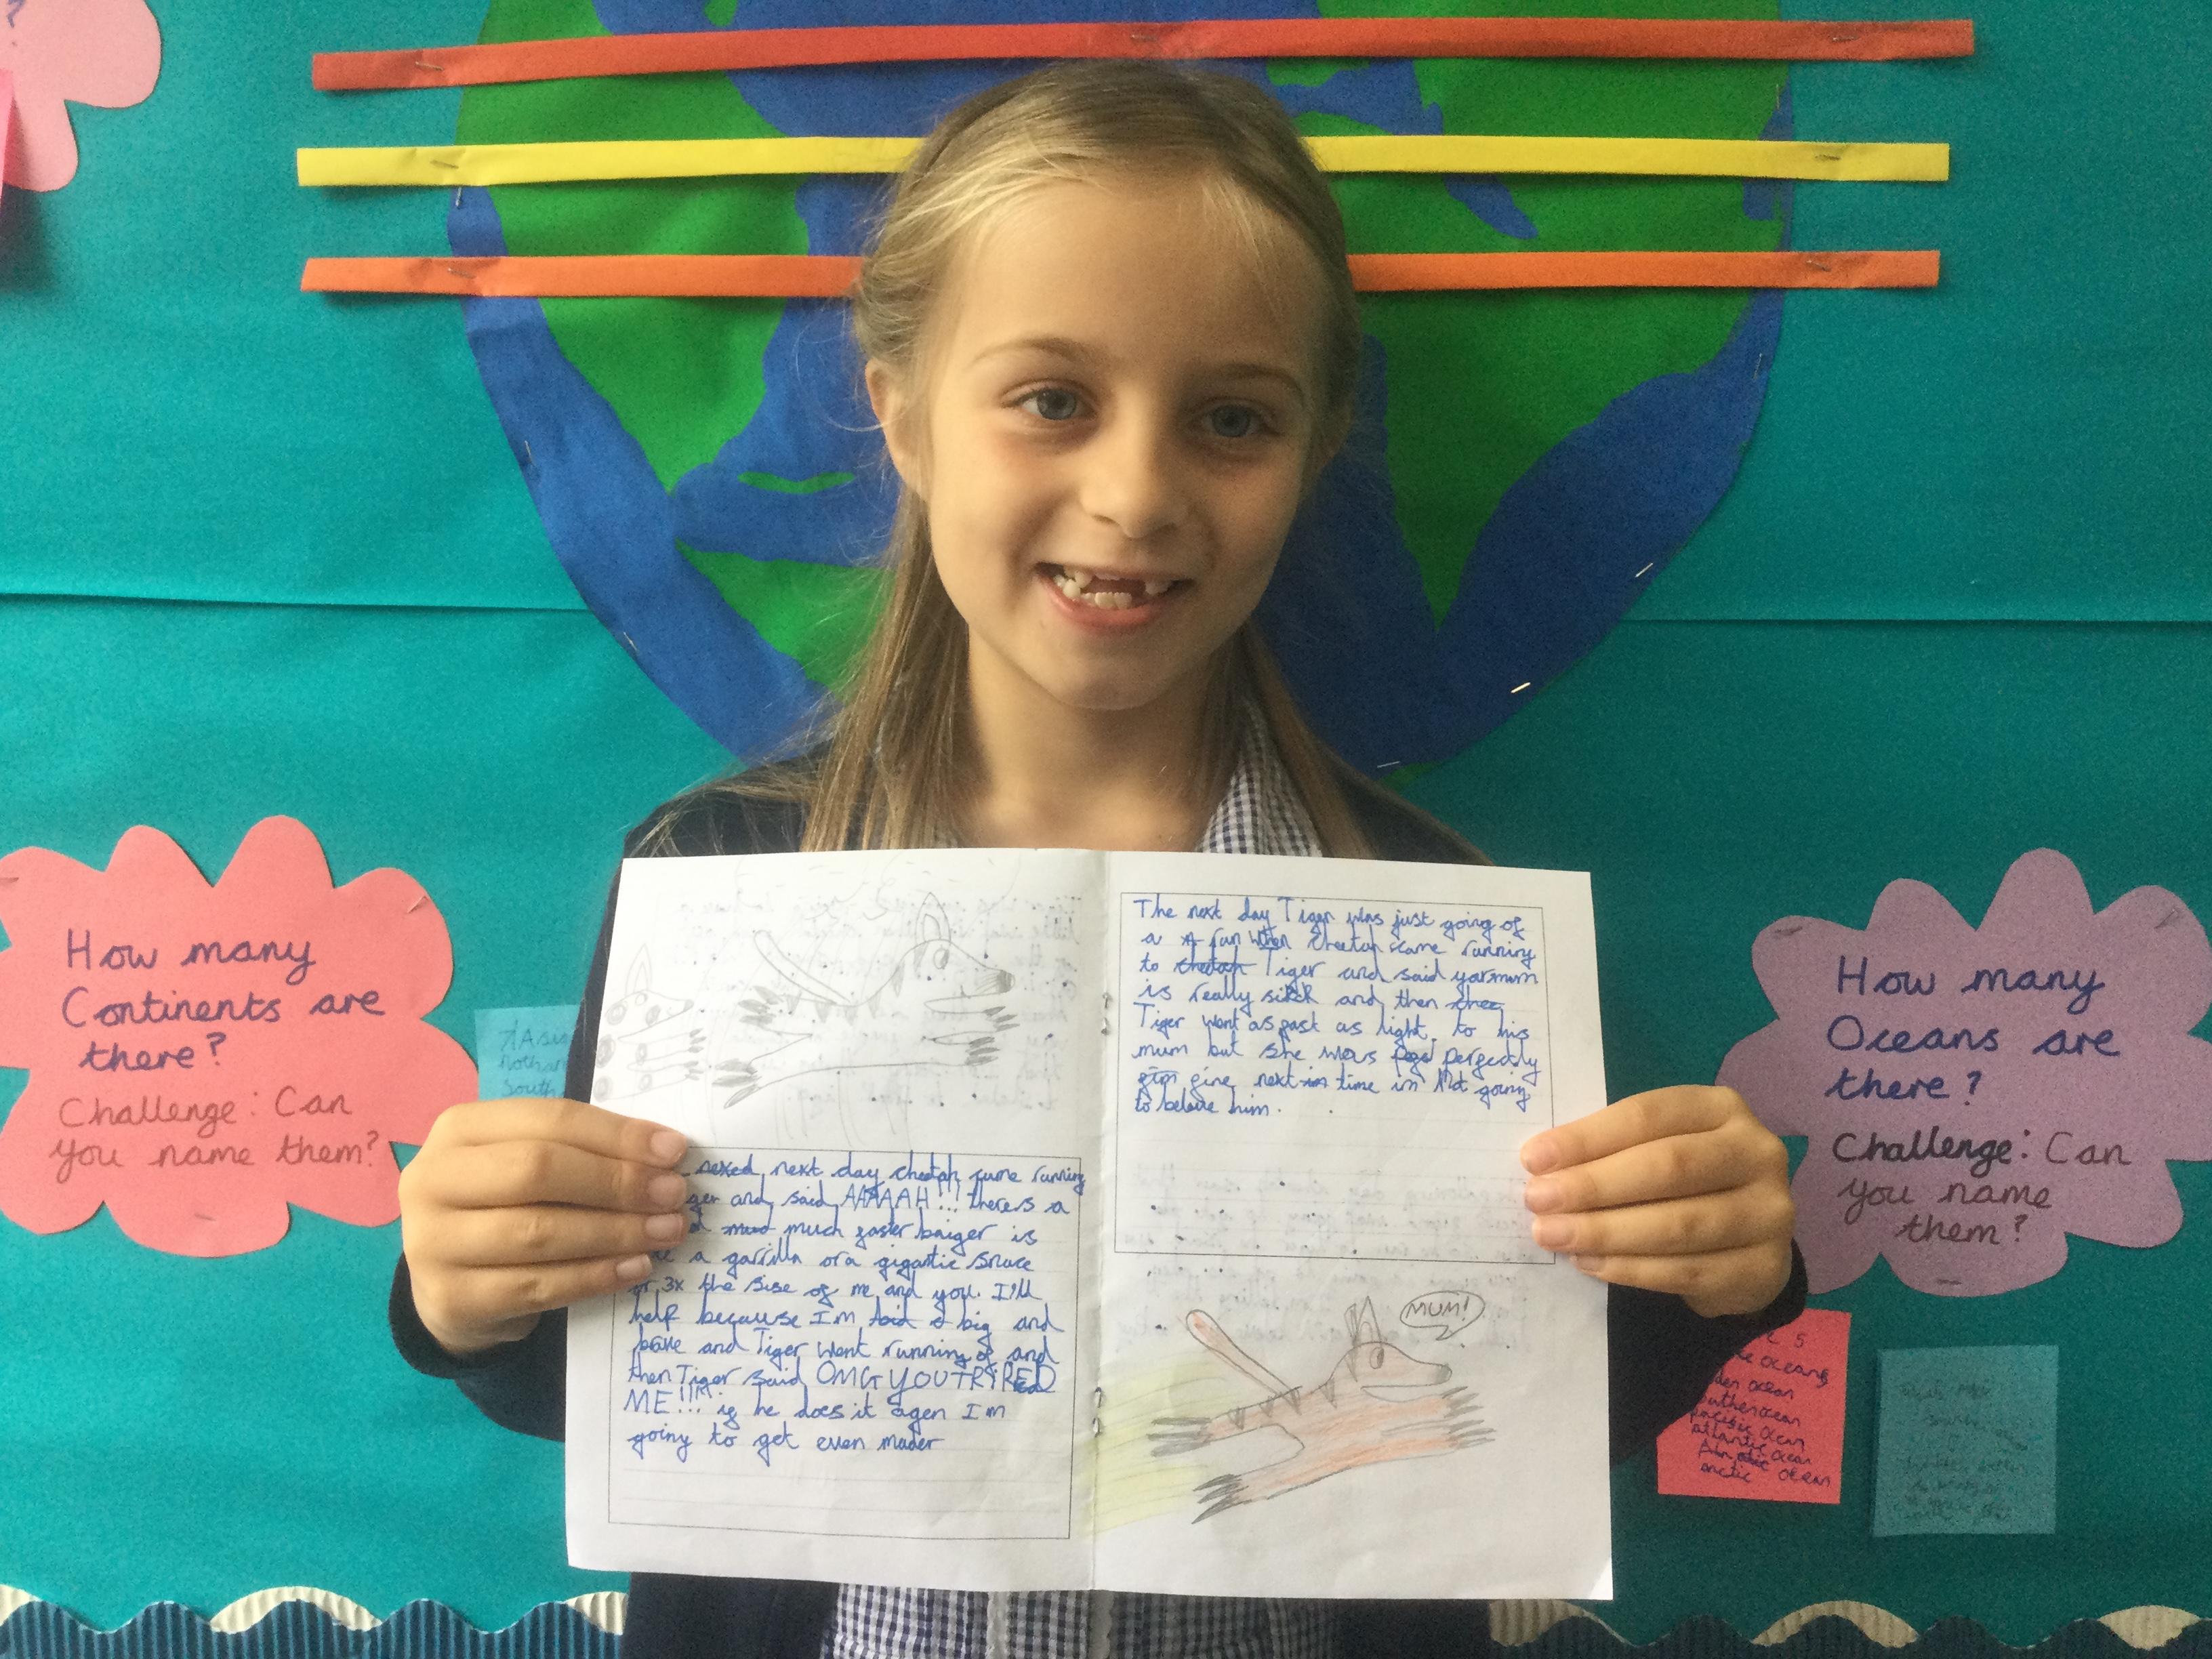 How many
Continents are
there?
Challenge: Can
you name them?
next day cheetah came running
and said AAAAAH!!! theres a
much much faster baiger is
a garilla or a gigantic snace
or 3x the sise of me and you. I'll
help because I'm big and
brave and Tiger went running of and
then Tiger said OMG YOU TRIRED
ME!!!! if he does it agen I'm
going to get even mader
The next day Tiger was just going of
a run when cheetah came running
to cheetah Tiger and said yor mum
is really sick and then chee
Tiger went as fast as light to his
mum but she was perfectly
fine next in time im Not going
to belave him.
MUM!
How many
Oceans are
there?
Challenge: Can
you name
them?
oceans
ocean
southen ocean
pacific ocean
atlantic ocean
ocean
arctic